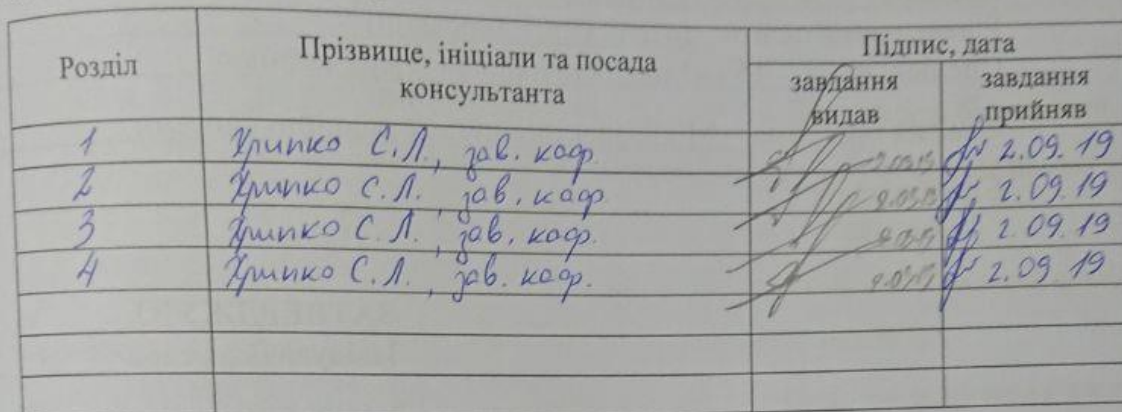 Розділ Прізвище, ініціали та посада консультанта Підпис, дата
завдання видав завдання прийняв
1 Хрипко С.Л., зав. каф. 2.09.19 2.09.19
2 Хрипко С.Л., зав. каф. 2.09.19 2.09.19
3 Хрипко С.Л., зав. каф. 2.09.19
4 Хрипко С.Л., зав. каф. 2.09.19